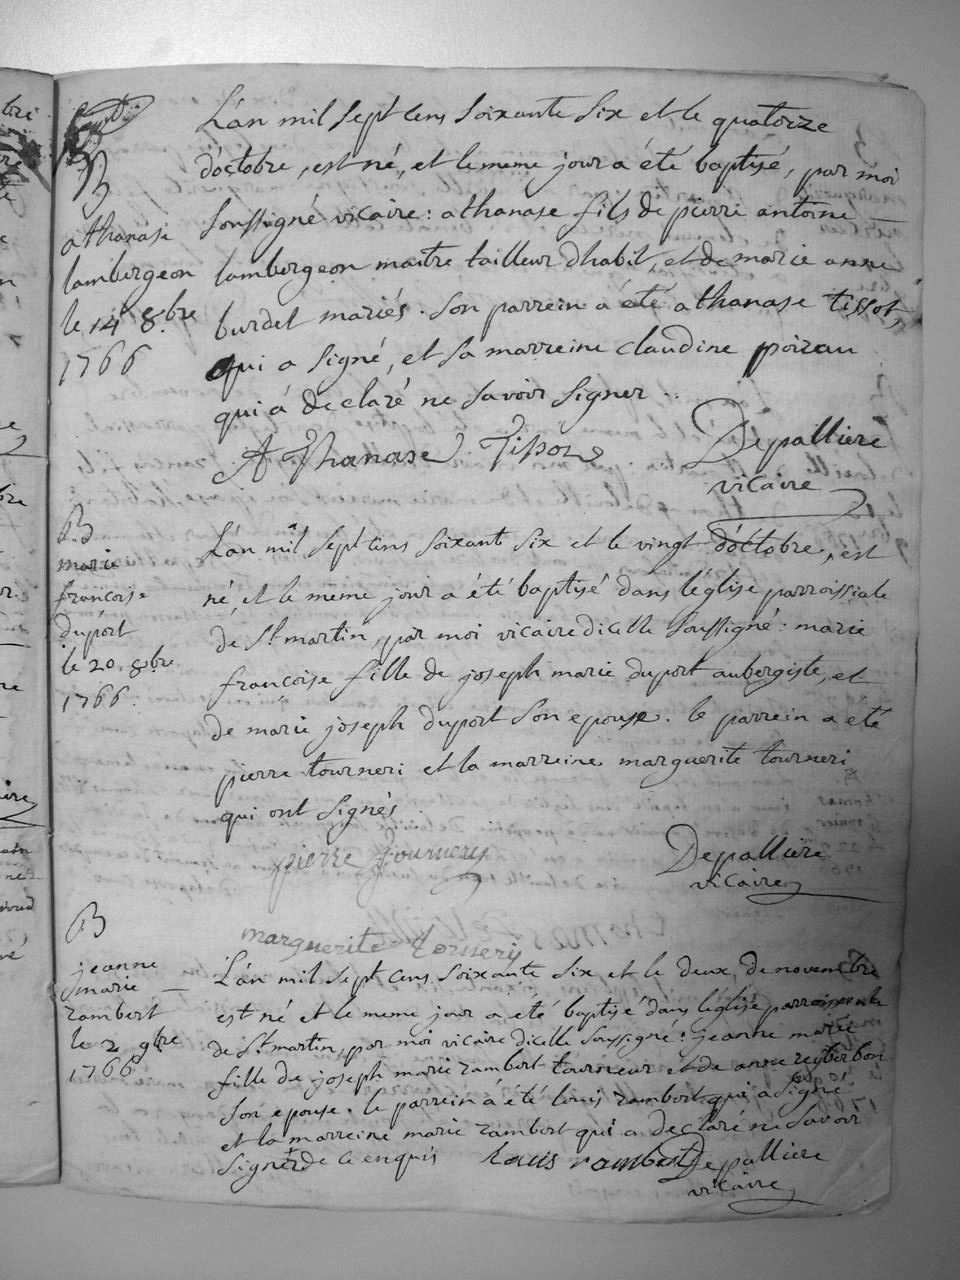 B
athanase
lambergeon
le 14 8bre
1766
L'an mil sept cens soixante six et le quatorze
d'octobre, est né, et le meme jour a été baptisé, par moi
soussigné vicaire : athanase fils de pierre antoine
lambergeon maitre tailleur d'habit, et de marie anne
burdet mariés. Son parrein a été athanase tissot,
qui a signé, et sa marreine claudine poizau
qui á declaré ne savoir signer ..
Athanase Tissot
Depalliere
vicaire
B
marie
françoise
duport
le 20 8bre
1766.
L'an mil sept cens soixante six et le vingt d'octobre, est
né, et le meme jour a été baptisé dans l'église parroissiale
de St martin, par moi vicaire d'icelle soussigné : marie
françoise fille de joseph marie duport aubergiste, et
de marie joseph duport son epouse. le parrein a été
pierre tourneri et la marreine marguerite tourneri
qui ont signés
pierre Tournery
Depalliere
vicaire
marguerite Tornery
B
jeanne
marie
rambert
le 2 9bre
1766
L'an mil sept cens soixante six et le deux de novembre
est né et le meme jour a été baptisé dans l'église parroissiale
de St martin, par moi vicaire d'icelle soussigné : jeanne marie
fille de joseph marie rambert tourneur et de anne reyberbon
son epouse. le parrein á été louis rambert qui a signé
et la marreine marie rambert qui a declaré ne savoir
signer de ce enquis
Louis rambert
Depalliere
vicaire